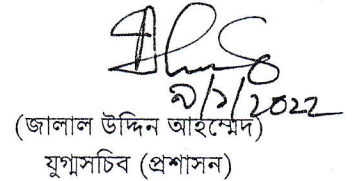 ৯/১/2022
(জালাল উদ্দিন আহম্মেদ)
যুগ্মসচিব (প্রশাসন)